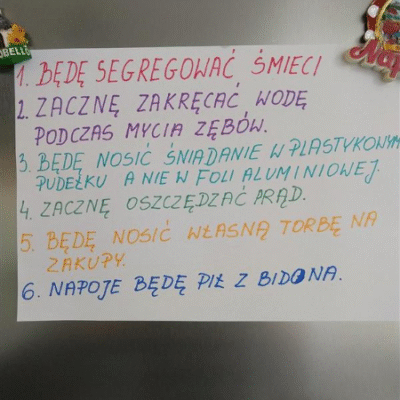 1. BĘDĘ SEGREGOWAĆ ŚMIECI
2. ZACZNĘ ZAKRĘCAĆ WODĘ
PODCZAS MYCIA ZĘBÓW.
3. BĘDĘ NOSIĆ ŚNIADANIE W PLASTYKOWYM
PUDEŁKU A NIE W FOLI ALUMINIOWEJ.
4. ZACZNĘ OSZCZĘDZAĆ PRĄD.
5. BĘDĘ NOSIĆ WŁASNĄ TORBĘ NA
ZAKUPY.
6. NAPOJE BĘDĘ PIŁ Z BIDONA.